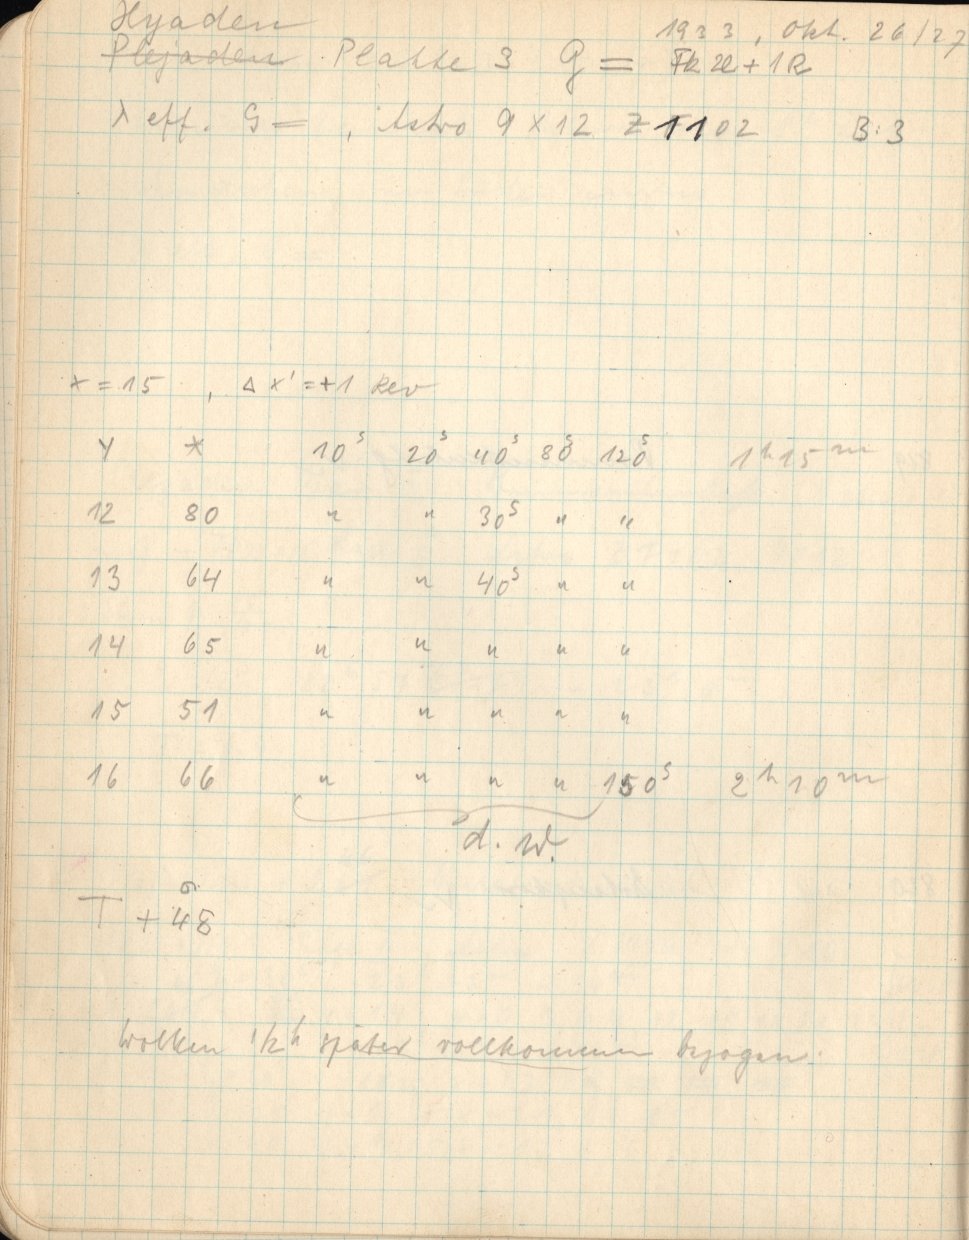 Hyaden
1933, Okt. 26/27
Plejaden Platte 3 G = +1R
λ eff. G = , Astro 9 × 12 Z 1102 B: 3
x = 15 , Δ x' = +1 Rev
Y X 10s 20s 40s 80s 120s 1h15m
12 80 " " 30s " "
13 64 " " 40s " "
14 65 " " " " "
15 51 " " " " "
16 66 " " " " 150s 2h10m
d. W.
T + 48
Wolken 1/2h später vollkommen bezogen.